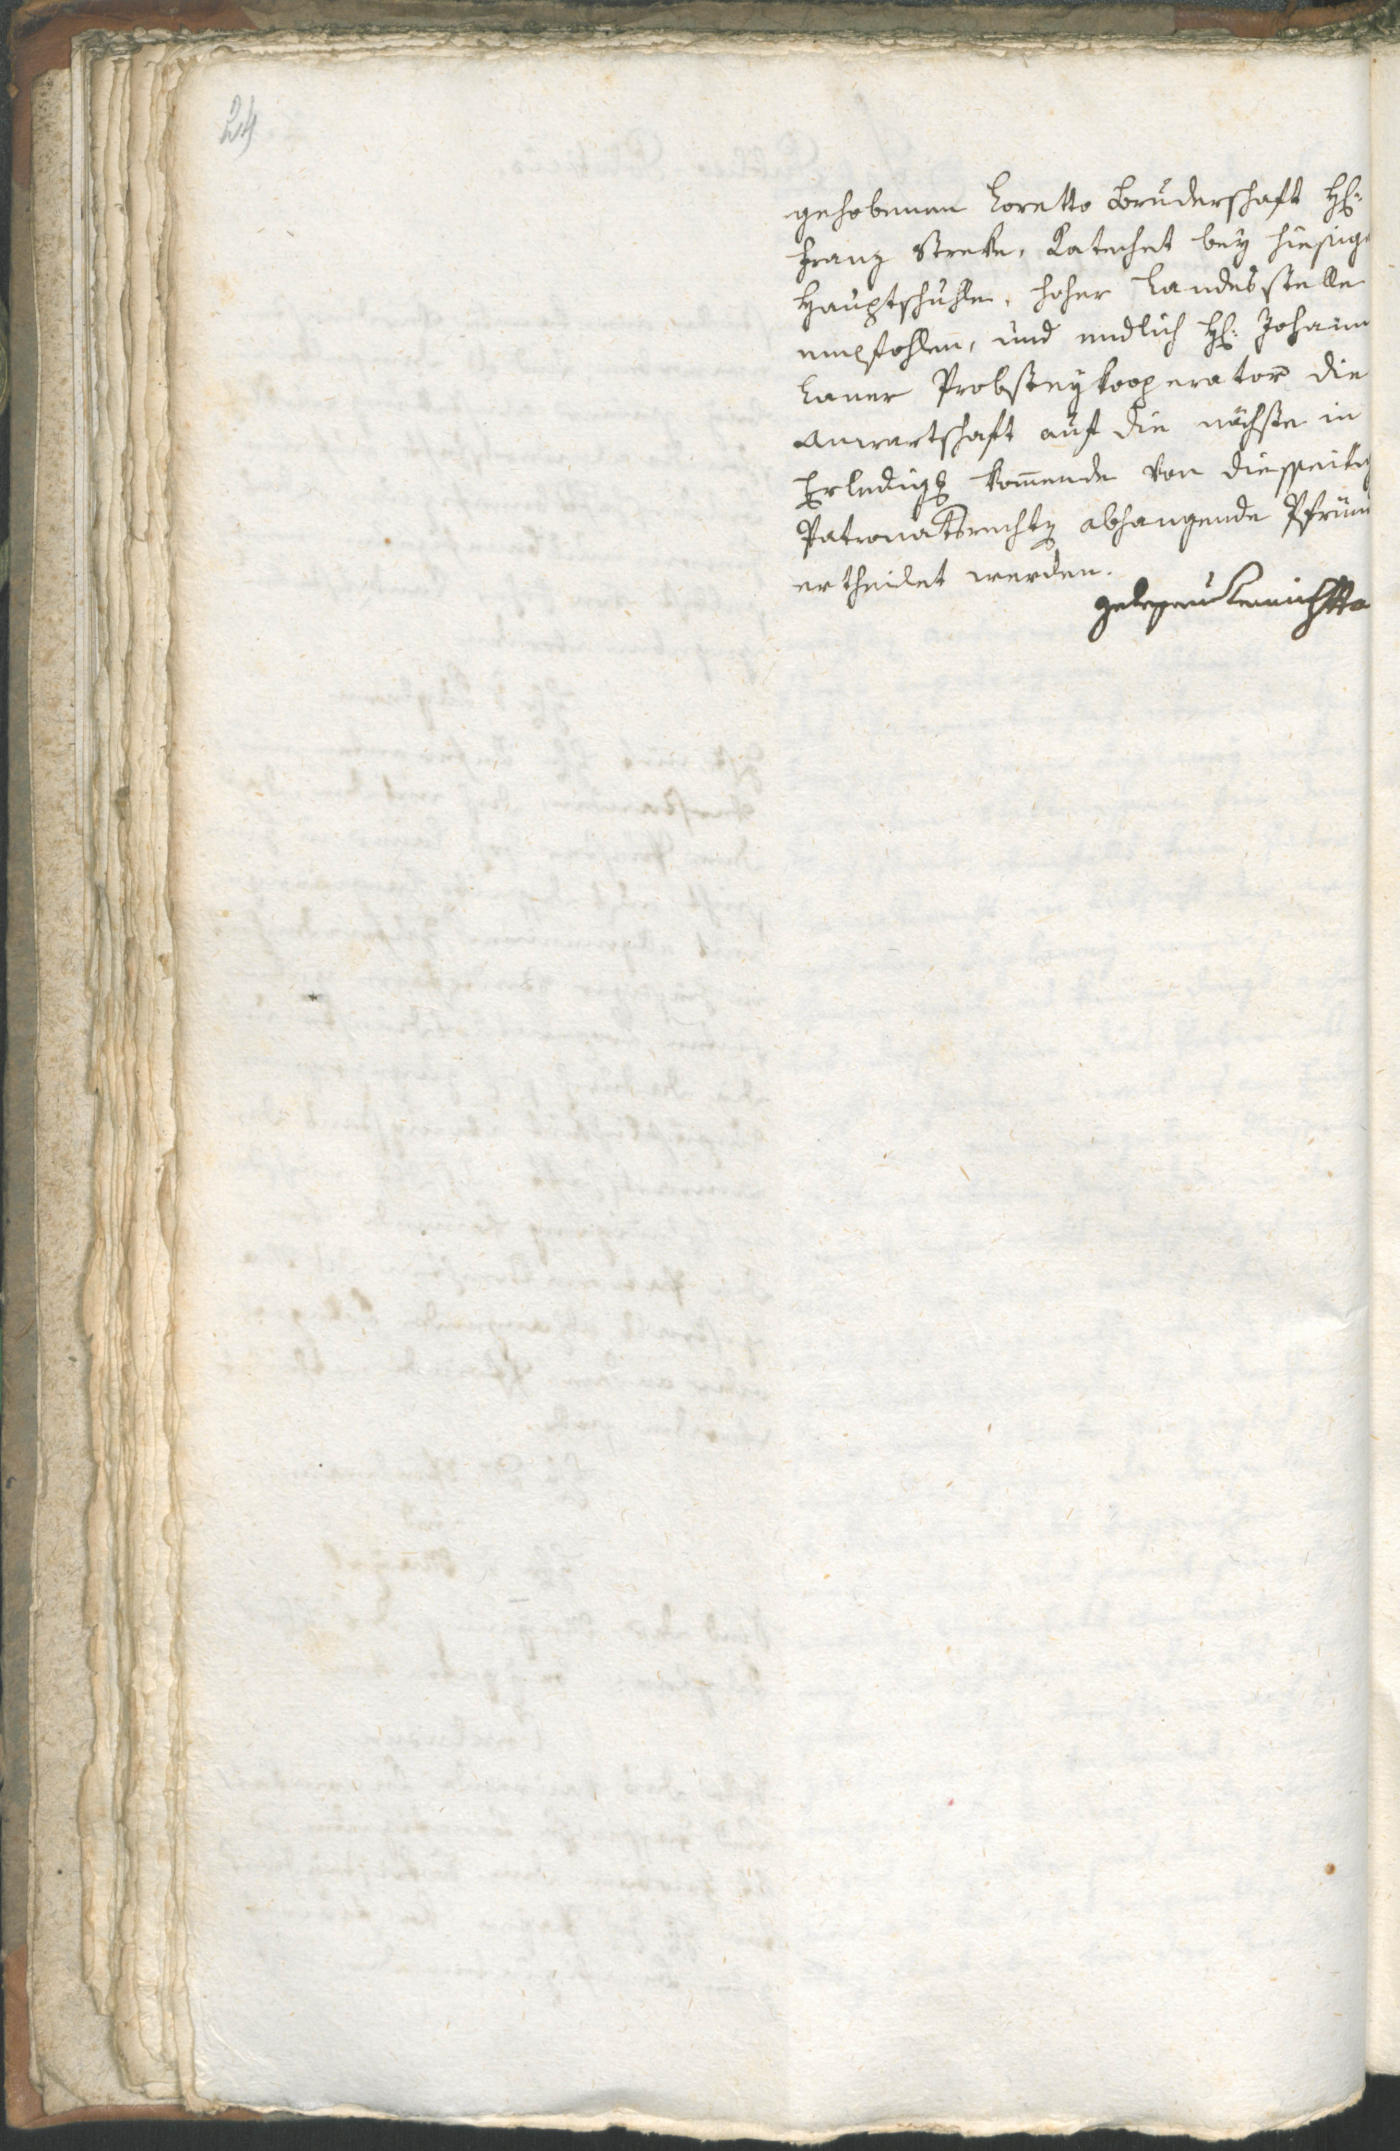 24
gehobenen Loretto Bruderschaft H:
Franz Streke, Katechet bey hiesige
Hauptschulle, hoher Landesstelle
empfohlen, und endlich H: Johann
Laner Probsteykooperator die
Anwartschaft auf die nächste in
Erledigg kommende von diesseitig
Patronatsrecht abhangende Pfrün
ertheilet werden.